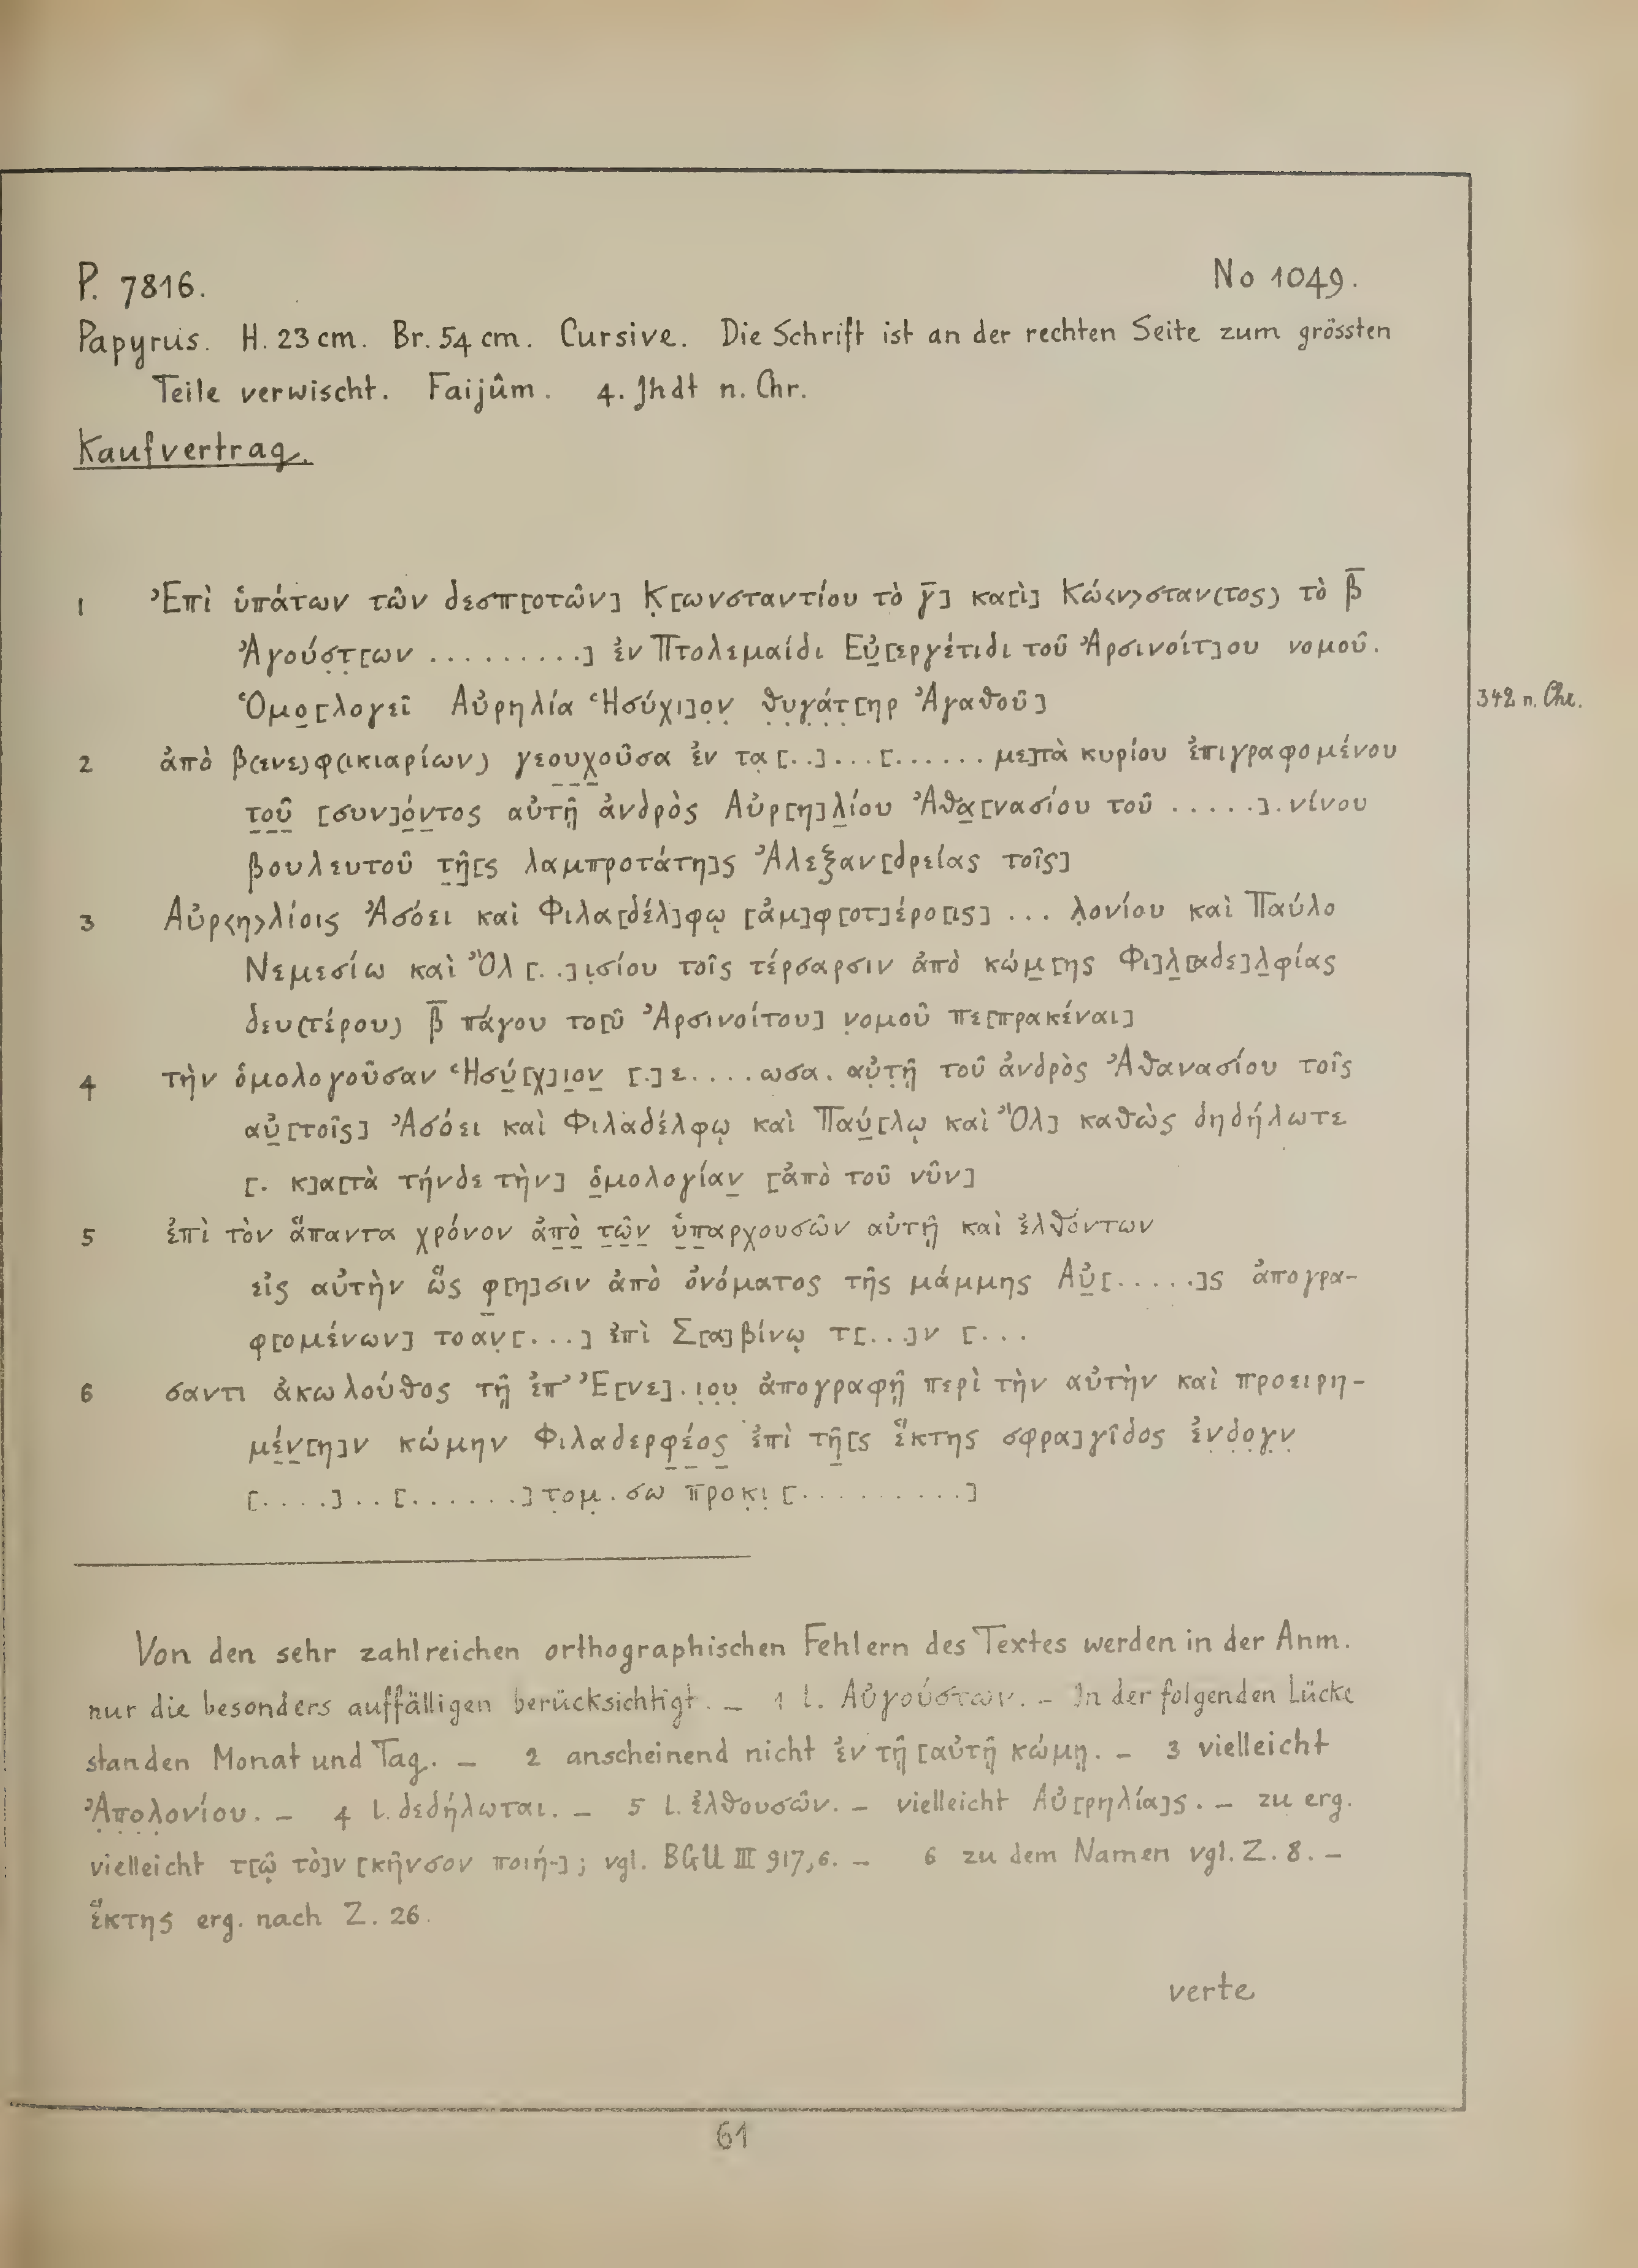 P. 7816. No 1049.
Papyrus. H. 23 cm. Br. 54 cm. Cursive. Die Schrift ist an der rechten Seite zum grössten
Teile verwischt. Faijûm. 4. Jhdt n. Chr.
Kaufvertrag.
1 Ἐπὶ ὑπάτων τῶν δεσπ[οτῶν] Κ̣[ωνσταντίου τὸ γ̅] κα[ὶ] Κώ<ν>σταν(τος) τὸ β̅
Ἀγούσ̣τ̣[ων .........] ἐν Πτολεμαίδι Εὐ̣[εργέτιδι τοῦ Ἀρσινοίτ]ου νομοῦ.
Ὁμο̣[λογεῖ Αὐρηλία Ἡσύχι]ο̣ν̣ θ̣υ̣γ̣ά̣τ̣[ηρ Ἀγαθοῦ]
342 n. Chr.
2 ἀπὸ β(ενε)φ(ικιαρίων) γεουχοῦσα ἐν τα̣[..]...[...... με]τὰ κυρίου ἐπιγραφομένου
τοῦ [συν]όντος αὐτῇ ἀνδρὸς Αὐρ[η]λίου Ἀθα[νασίου τοῦ .....].νίνου
βουλευτοῦ τῆ[ς λαμπροτάτη]ς Ἀλεξαν[δρείας τοῖς]
3 Αὐρ<η>λίοις Ἀσόει καὶ Φιλα[δέλ]φῳ [ἀμ]φ[οτ]έρο[ις] ... λ̣ονίου καὶ Παύλο
Νεμεσίω καὶ Ὂλ [..]ι̣σίου τοῖς τέρσαρσιν ἀπὸ κώμ[ης Φι]λ[αδε]λφίας
δευ(τέρου) β̅ πάγου το[ῦ Ἀρσινοίτου] ν̣ομοῦ πε[πρακέναι]
4 τὴν ὁμολογοῦσαν Ἡσύ[χ]ιον [.]ε....ωσα. αὐ̣τ̣ῇ τοῦ ἀνδρὸς Ἀθανασίου τοῖς
αὐ[τοῖς] Ἀσόει καὶ Φιλαδέλφῳ καὶ Παύ[λῳ καὶ Ὂλ] καθὼς δηδήλωτε
[. κ]α[τὰ τήνδε τὴν] ὁμολογίαν [ἀπὸ τοῦ νῦν]
5 ἐπὶ τὸν ἅπαντα χρόνον ἀπὸ τῶν ὑπαρχουσῶν αὐτῇ καὶ ἐλθόντων
εἰς αὐτὴν ὥς φ[η]σιν ἀπὸ ὀνόματος τῆς μάμμης Αὐ[.....]ς ἀπογρα-
φ[ομένων] τοαν̣[...] ἐπὶ Σ[α]βίνῳ τ[...]ν [...
6 σαντι ἀκωλούθος τῇ ἐπ' Ἐ[νε].ι̣ο̣υ̣ ἀπογραφῇ περὶ τὴν αὐτὴν καὶ προειρη-
μέν[η]ν κώμην Φιλαδερφέος ἐπὶ τῆ[ς ἕκτης σφρα]γῖδος ἐν̣δ̣ο̣γ̣ν̣
[....]..[......]τ̣ομ̣.σω προκ̣ι̣[..........]
Von den sehr zahlreichen orthographischen Fehlern des Textes werden in der Anm.
nur die besonders auffälligen berücksichtigt. – 1 l. Αὐγούστων. – In der folgenden Lücke
standen Monat und Tag. – 2 anscheinend nicht ἐν τῇ [αὐτῇ κώμῃ. – 3 vielleicht
Ἀ̣π̣ο̣λ̣ονίου. – 4 l. δεδήλωται. – 5 l. ἐλθουσῶν. – vielleicht Αὐ[ρηλία]ς. – zu erg.
vielleicht τ[ῷ τὸ]ν [κῆνσον ποιή-]; vgl. BGU III 917,6. – 6 zu dem Namen vgl. Z. 8. –
ἕκτης erg. nach Z. 26.
verte
61